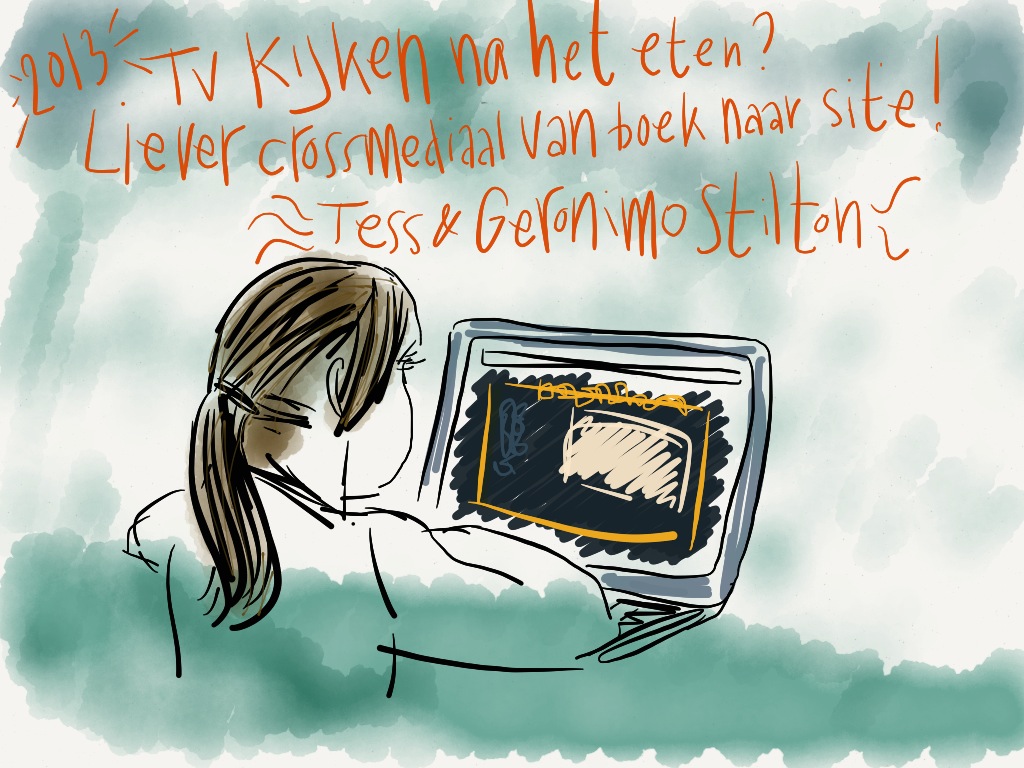 2013 TV Kijken na het eten?
Liever crossmediaal van boek naar site!
Tess & Geronimo Stilton